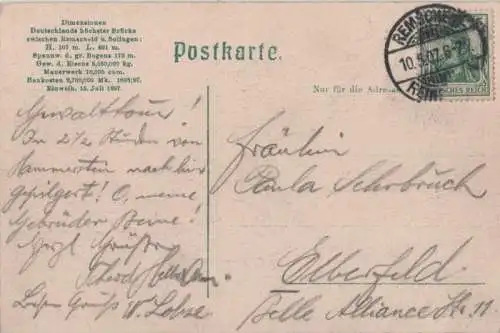 Dimensionen
Deutschlands höchster Brücke
zwischen Remscheid u. Solingen:
H. 107 m. L. 491 m.
Spannw. d. gr. Bogens 170 m.
Gew. d. Eisens 5,000,000 kg.
Mauerwerk 10,000 cbm.
Baukosten 2,700,000 Mk. 1895/97.
Einweih. 15. Juli 1897.
Postkarte.
Nur für die Adresse
REMSCHEID
10.5.07. 6-7
DEUTSCHES REICH
Gewalttour!
In 2 1/2 Stunden von
Hammerstein nach hier
gepilgert! O, meine
Gebrüder Beine!
Hrzl Grüße
Theod
W. Lohse
Fräulein
Paula Sehrbruch
Elberfeld
Belle Alliance Str. 11